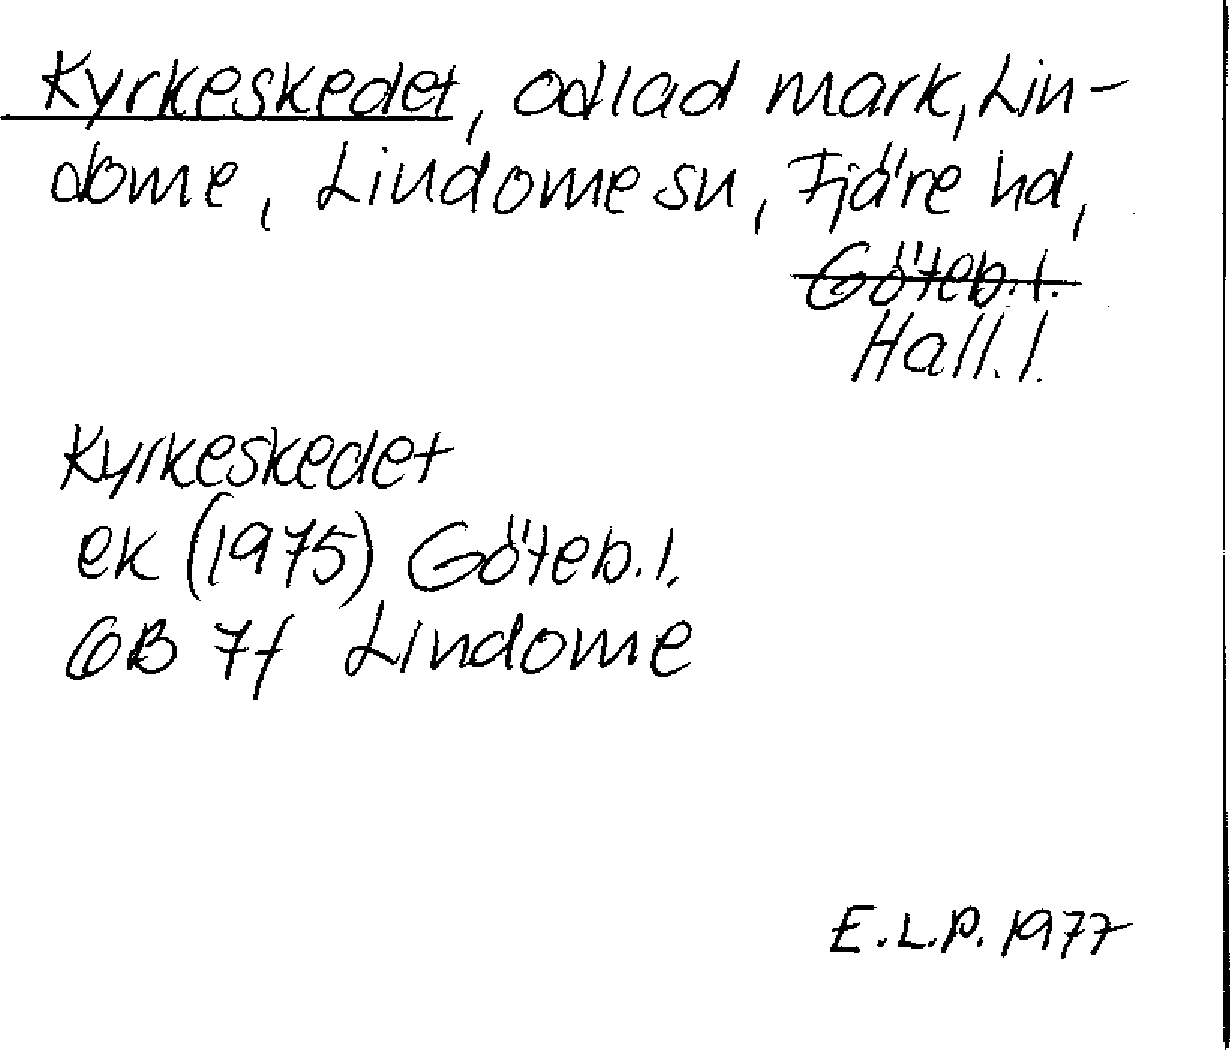 Kyrkeskedet, odlad mark, Lin-
dome, Lindome sn, Fjäre hd,
Göteb. l.
Hall. l.
Kyrkeskedet
ek (1975) Göteb. l.
6B 7f Lindome
E.L.P. 1977